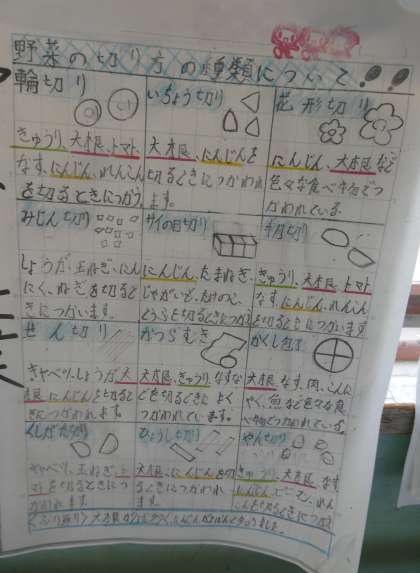 野菜の切り方の種類について!!
輪切り
きゅうり、大根、トマト、
なす、にんじん、れんこん
を切るときにつかう
いちょう切り
大根、にんじんを
切るときにつかわれ
ます。
花形切り
にんじん、大根など
色々な食べ物でつ
かわれている。
みじん切り
しょうが、玉ねぎ、にん
にく、ねぎを切ると
きにつかいます。
サイの目切り
にんじん、たまねぎ、
じゃがいも、たけのこ、
とうふを切るときにつかう
半月切り
きゅうり、大根、トマト
なす、にんじん、れんこん
を切るときにつかいます
せん切り
キャベツ、しょうが、大
根、にんじんを切ると
きにつかわれます。
かつらむき
大根、きゅうり、なすな
どを切るときによく
つかわれています。
かくし包丁
大根、なす、肉、こんに
ゃく、魚など色々な食
べ物でつかわれている。
くしがた切り
キャベツ、玉ねぎ、ト
マトを切るときにつ
かわれます
ひょうし切り
大根、にんじんを切
るときにつかわれ
ます
らん切り
きゅうり、大根、なす、
にんじん、れん
こんを切るときにつかう
<ふり返り>大根